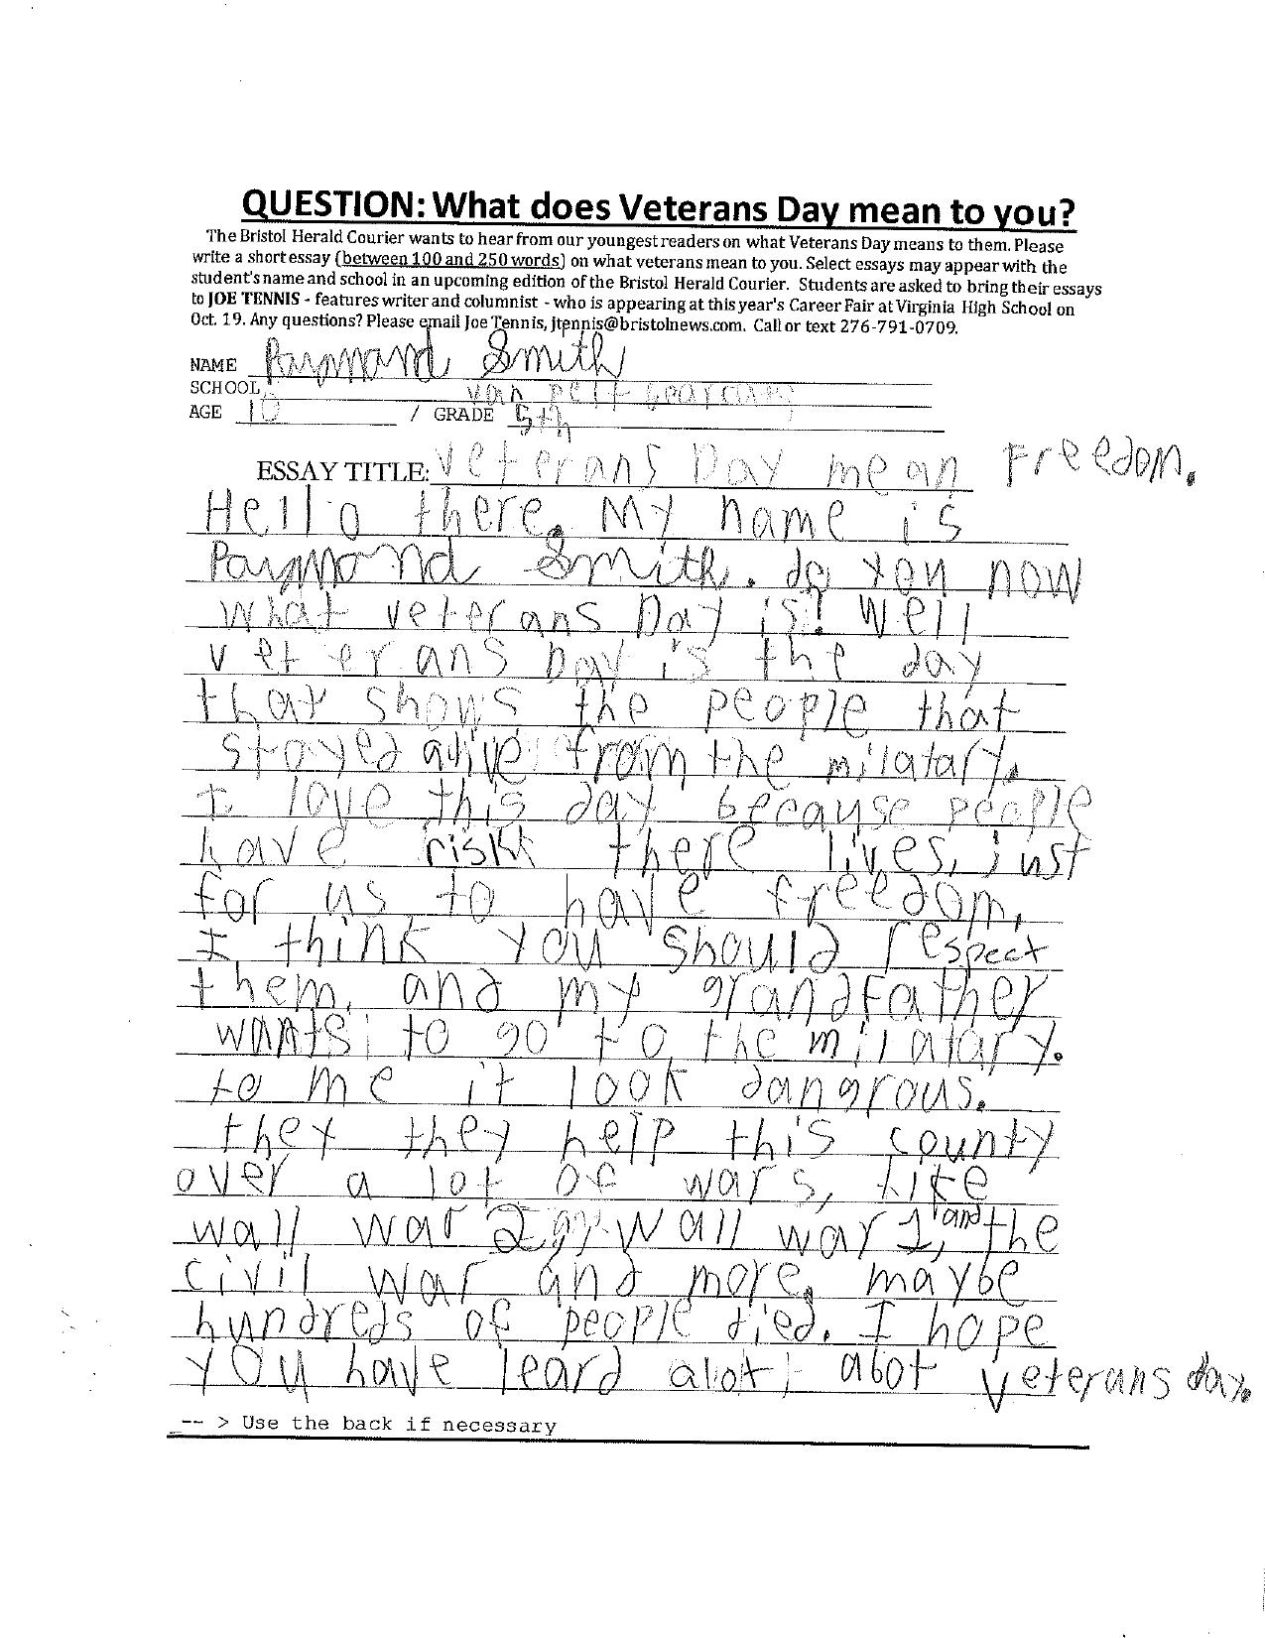 QUESTION: What does Veterans Day mean to you?
The Bristol Herald Courier wants to hear from our youngest readers on what Veterans Day means to them. Please
write a short essay (between 100 and 250 words) on what veterans mean to you. Select essays may appear with the
student's name and school in an upcoming edition of the Bristol Herald Courier. Students are asked to bring their essays
to JOE TENNIS - features writer and columnist - who is appearing at this year's Career Fair at Virginia High School on
Oct. 19. Any questions? Please email Joe Tennis, jtennis@bristolnews.com. Call or text 276-791-0709.
NAME Raymond Smith
SCHOOL van pelt
AGE 10 / GRADE 5th
ESSAY TITLE: veterans Day mean Freedom.
Hello there. My name is
Raymond Smith. do you now
what veterans Day is! Well
veterans Day is the day
that shows the people that
stayed alive from the milatary.
I love this day because people
have risk there lives, just
for us to have freedom,
I think you should respect
them, and my grandfather
wants to go to the milatary.
to me it look dangrous.
they they help this county
over a lot of wars, like
wall war 2 wall war 1, and the
civil war and more, maybe
hundreds of people died. I hope
you have leard alot abot veterans day.
-- > Use the back if necessary